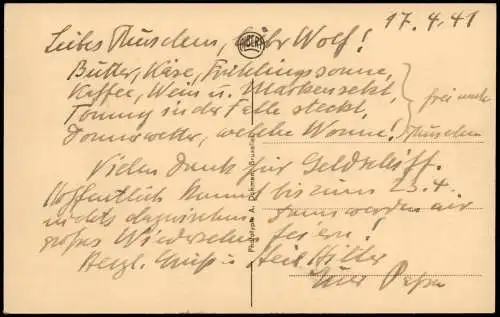 17.4.41
Liebes Muschen, Wolf!
Butter, Käse, Frühlingssonne,
Kaffee, Wein u. Markensekt,
Tommy in der Falle steckt,
Donnerwetter, welche Wonne!
frei nach
Muschen
Vielen Dank für Geldschiff.
Hoffentlich kommt bis zum 23.4.
nichts dazwischen. Dann werden wir
großes Wiedersehen feiern!
Herzl. Gruß u. Heil Hitler
Euer
Phototypie A. Dohmen, Bruxelles